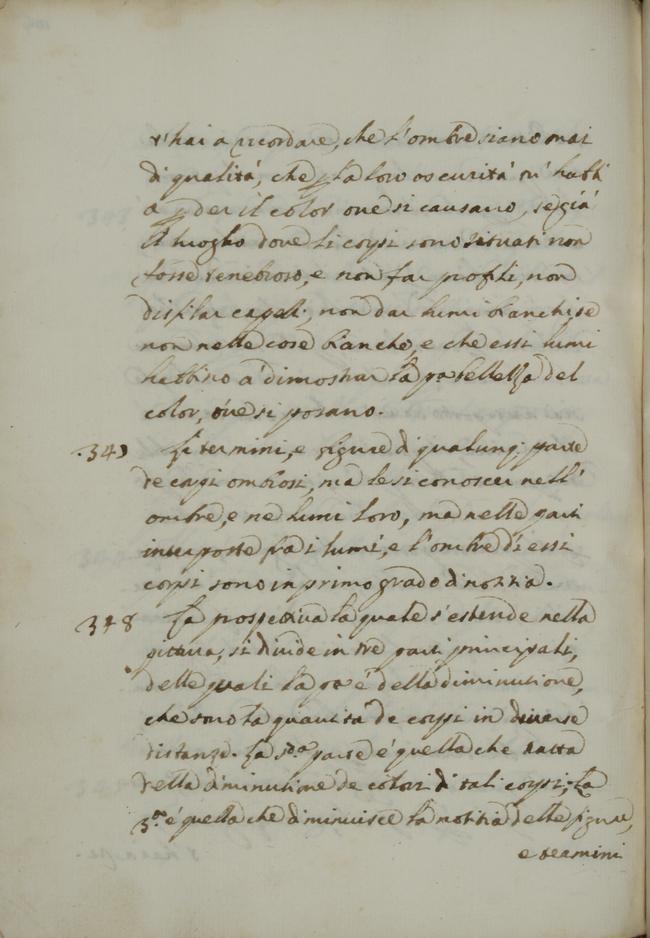 t'hai a ricordare, che l'ombre siano mai
di qualità, che p la loro oscurità tu habbi
a pder il color ove si causano, se già
il luogho dove li corpi sono situati non
fosse tenebroso, e non far profili, non
disfilar capeli, non dar lumi bianchi, se
non nelle cose bianche, e che essi lumi
habbino à dimostrar la pa bellezza del
color, ove si posano.
.347 Li termini, e figure di qualunq; parte
de corpi ombrosi, male si conoscer nell'
ombre, e ne lumi loro, ma nelle parti
interposte fra i lumi, e l'ombre di essi
corpi sono in primo grado di notitia.
348 La prospettiva la quale s'estende nella
pittura, si divide in tre parti principali,
delle quali la pa é della diminutione,
che sono la quantità de corpi in diverse
distanze. La 2da parte é quella che tratta
della diminutione de colori di tali corpi, la
3a é quella che diminuisce la notitia delle figure,
e termini